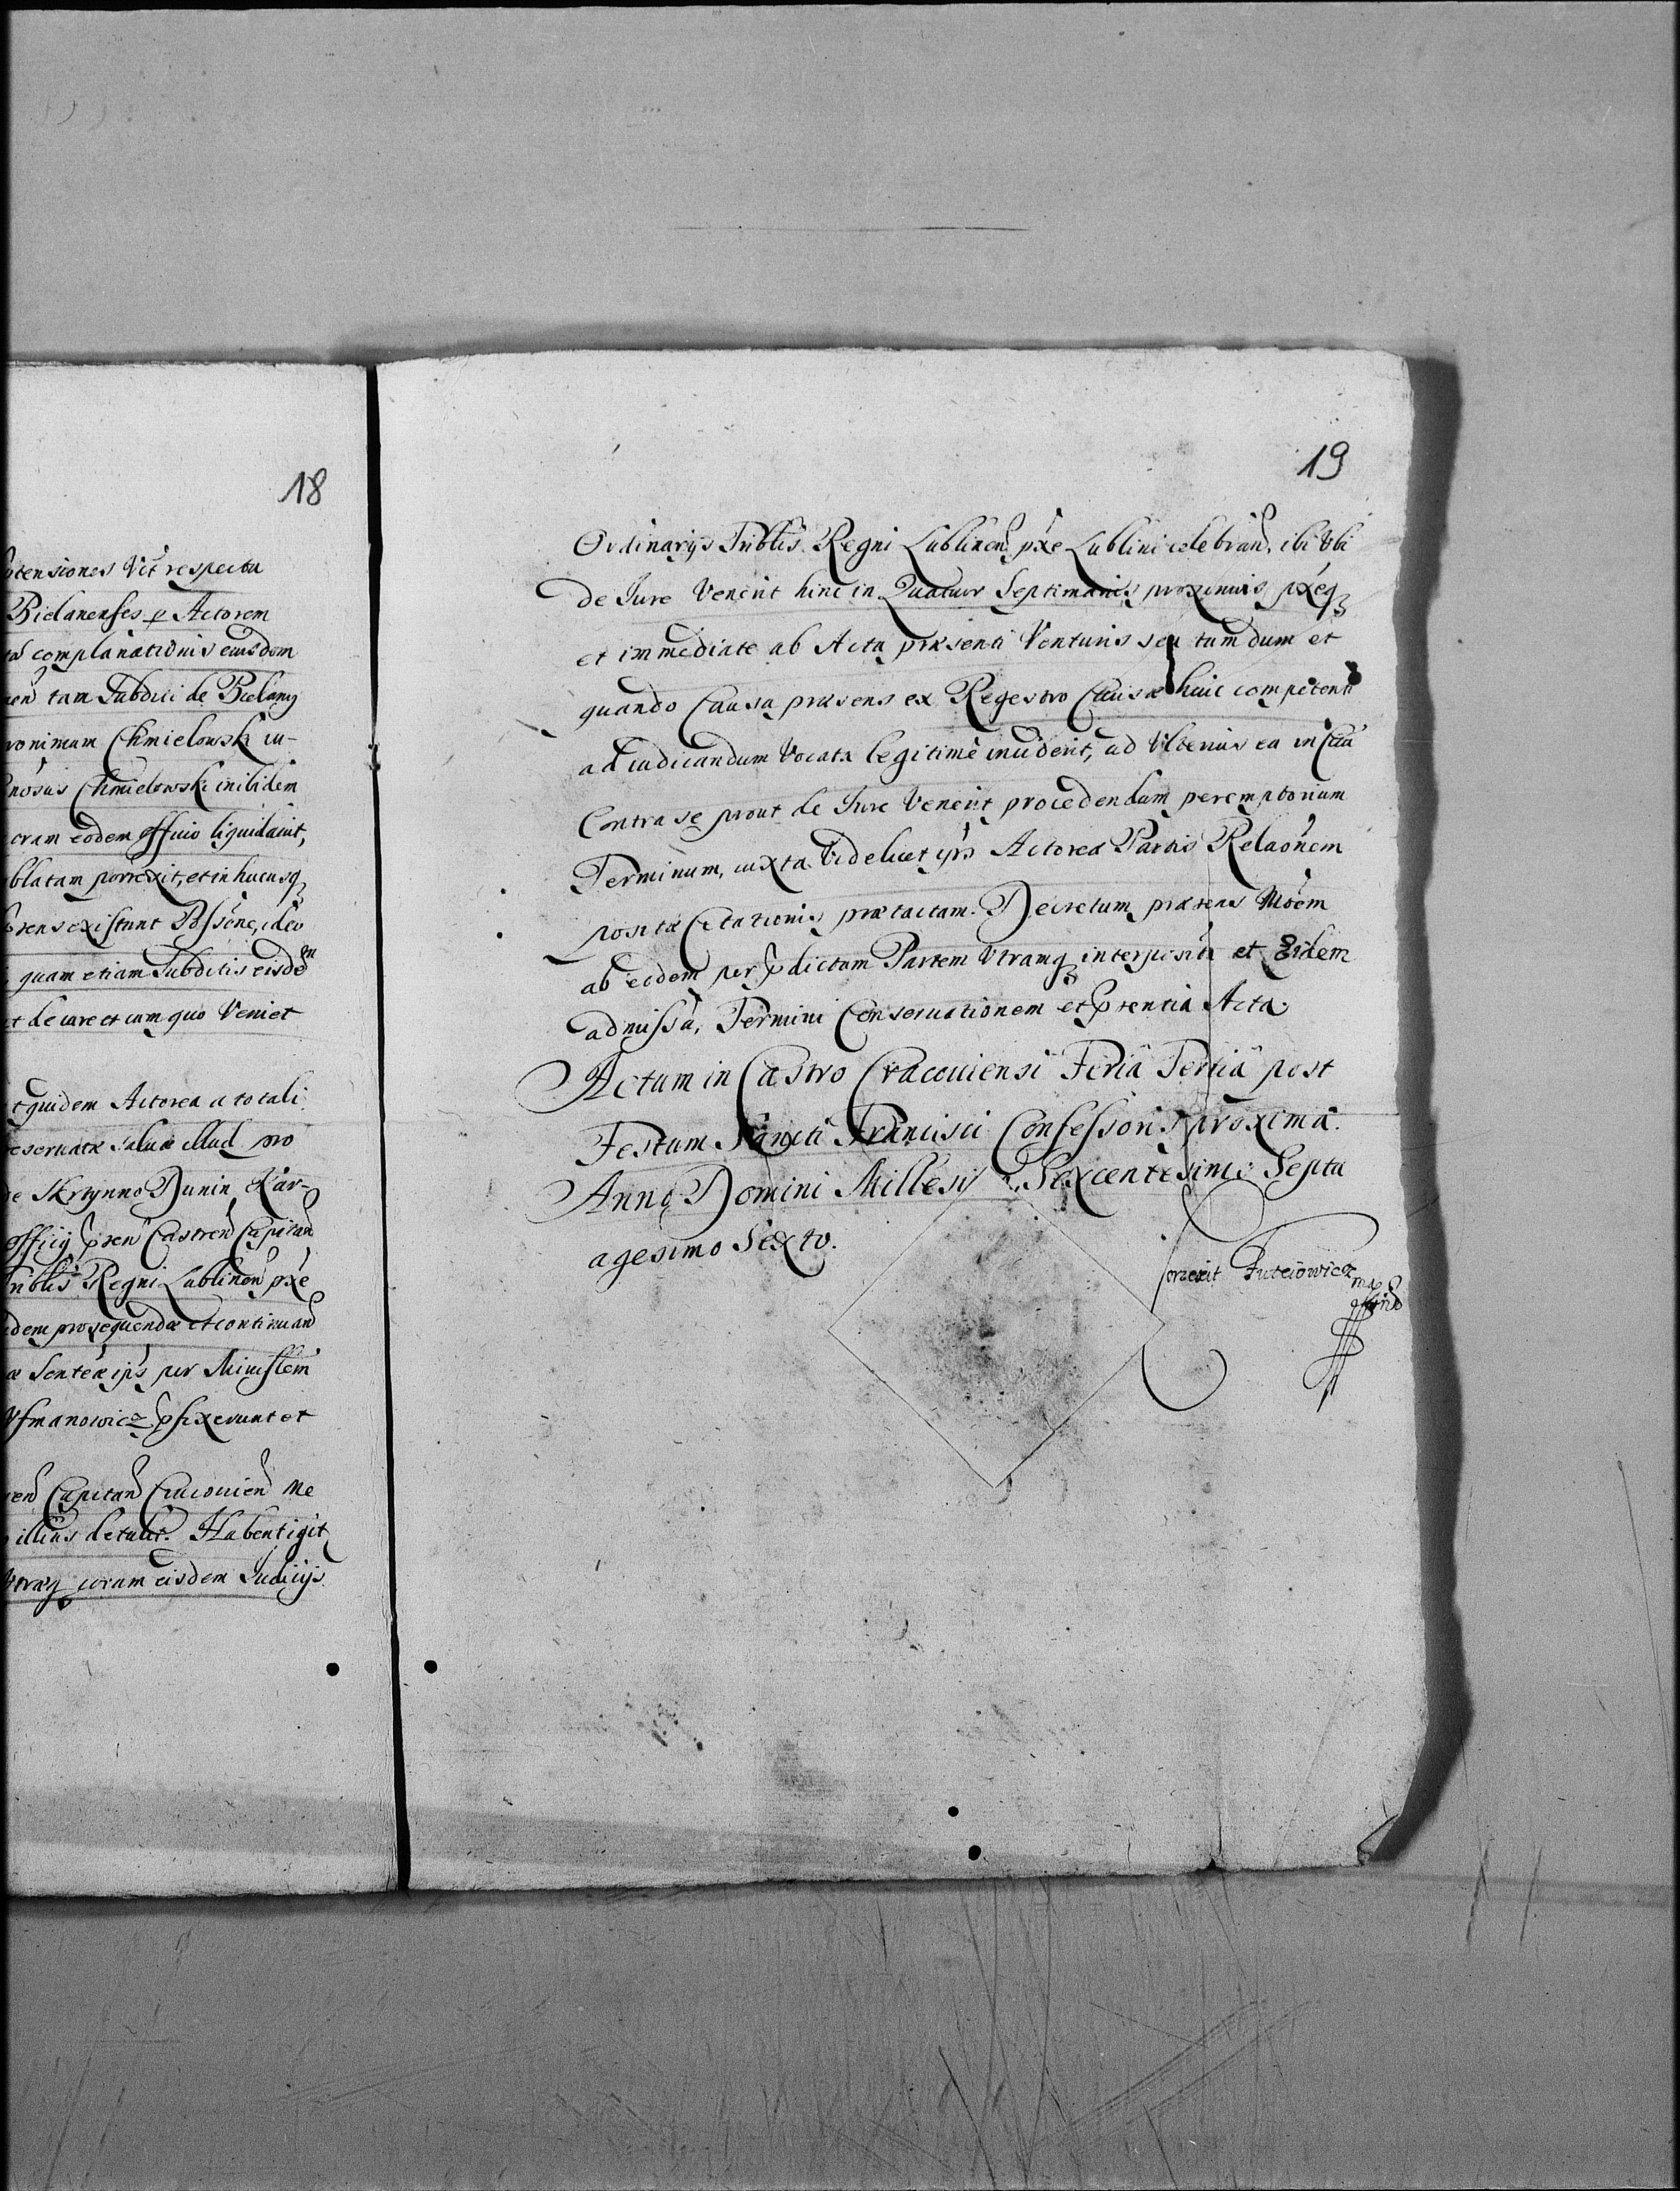 18
tensiones Vti respectu
Bielanenses p Actorem
complanationis eiusdem
tam Subditi de Bielany
ronimum Chmielowski in-
nosus Chmielowski inibidem
cram eodem officio liquidauit,
blatam porrexit, et in hucusq
existunt Possone, ideo
quam etiam Subditis eisdem
et de iure et cum quo Veniet
quidem Actorea a totali
eseruata salua illud pro
de Skrzynno Dunin Kar-
officij pren Castren Capitan
riblis Regni Lublinen pxe
dem prosequenda et continuand
Senten ips per Ministem
Vsmanowicz pfixerunt et
en Capitan Cracouien Me
illius detulit. Habent igit
Vtraq coram eisdem Iudicijs
19
Ordinarijs Triblis Regni Lublinen pxe Lublini celebrand, ibi Vbi
de Iure Venerit hinc in Quatuor Septimanis proximis pxeq
et immediate ab Acta præsenti Venturis seu tum dum et
quando Causa præsens ex Regestro Causæ huic competenti
ad iudicandum Vocata legitimè inciderit, ad Vlterius ea in
Contra se prout de Iure Venerit procedendum peremptorium
Terminum, iuxta Videlicet ips Actorea Partis Relaonem
positæ Citationis prætactam. Decretum præsens Moem
ab eodem per pdictam Partem Vtramq interposita et Eidem
admissa, Termini Conseruationem et prentia Acta.
Actum in Castro Cracouiensi Feria Tertia post
Festum Sancti Francisci Confessoris proxima.
Anno Domini Millesi Sexcentesimo Septu
agesimo Sexto.